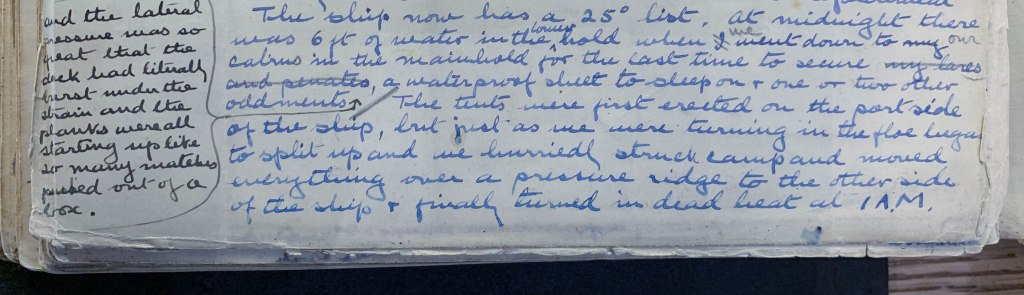 and the lateral
pressure was so
great that the
deck had literally
burst under the
strain and the
planks were all
starting up like
so many matches
pushed out of a
box.
The ship now has a 25° list. At midnight there
was 6 ft of water in the lower hold when I we went down to my our
cabins in the mainhold for the last time to secure my lares
and penates, a waterproof sheet to sleep on + one or two other
oddments. The tents were first erected on the port side
of the ship, but just as we were turning in the floe began
to split up and we hurriedly struck camp and moved
everything over a pressure ridge to the other side
of the ship + finally turned in dead beat at 1 A.M.